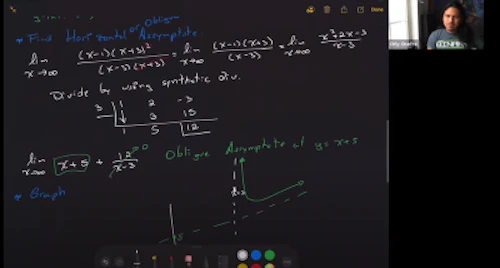 * Find Horizontal or Oblique Asymptote.
lim x→∞ (x-1)(x+3)² / (x-3)(x+3) = lim x→∞ (x-1)(x+3) / (x-3) = lim x→∞ x²+2x-3 / x-3
Divide by using synthetic div.
3 | 1 2 -3
↓ 3 15
1 5 |12
lim x→∞ x+5 + 12/x-3 →0 Oblique Asymptote at y = x+5
* Graph